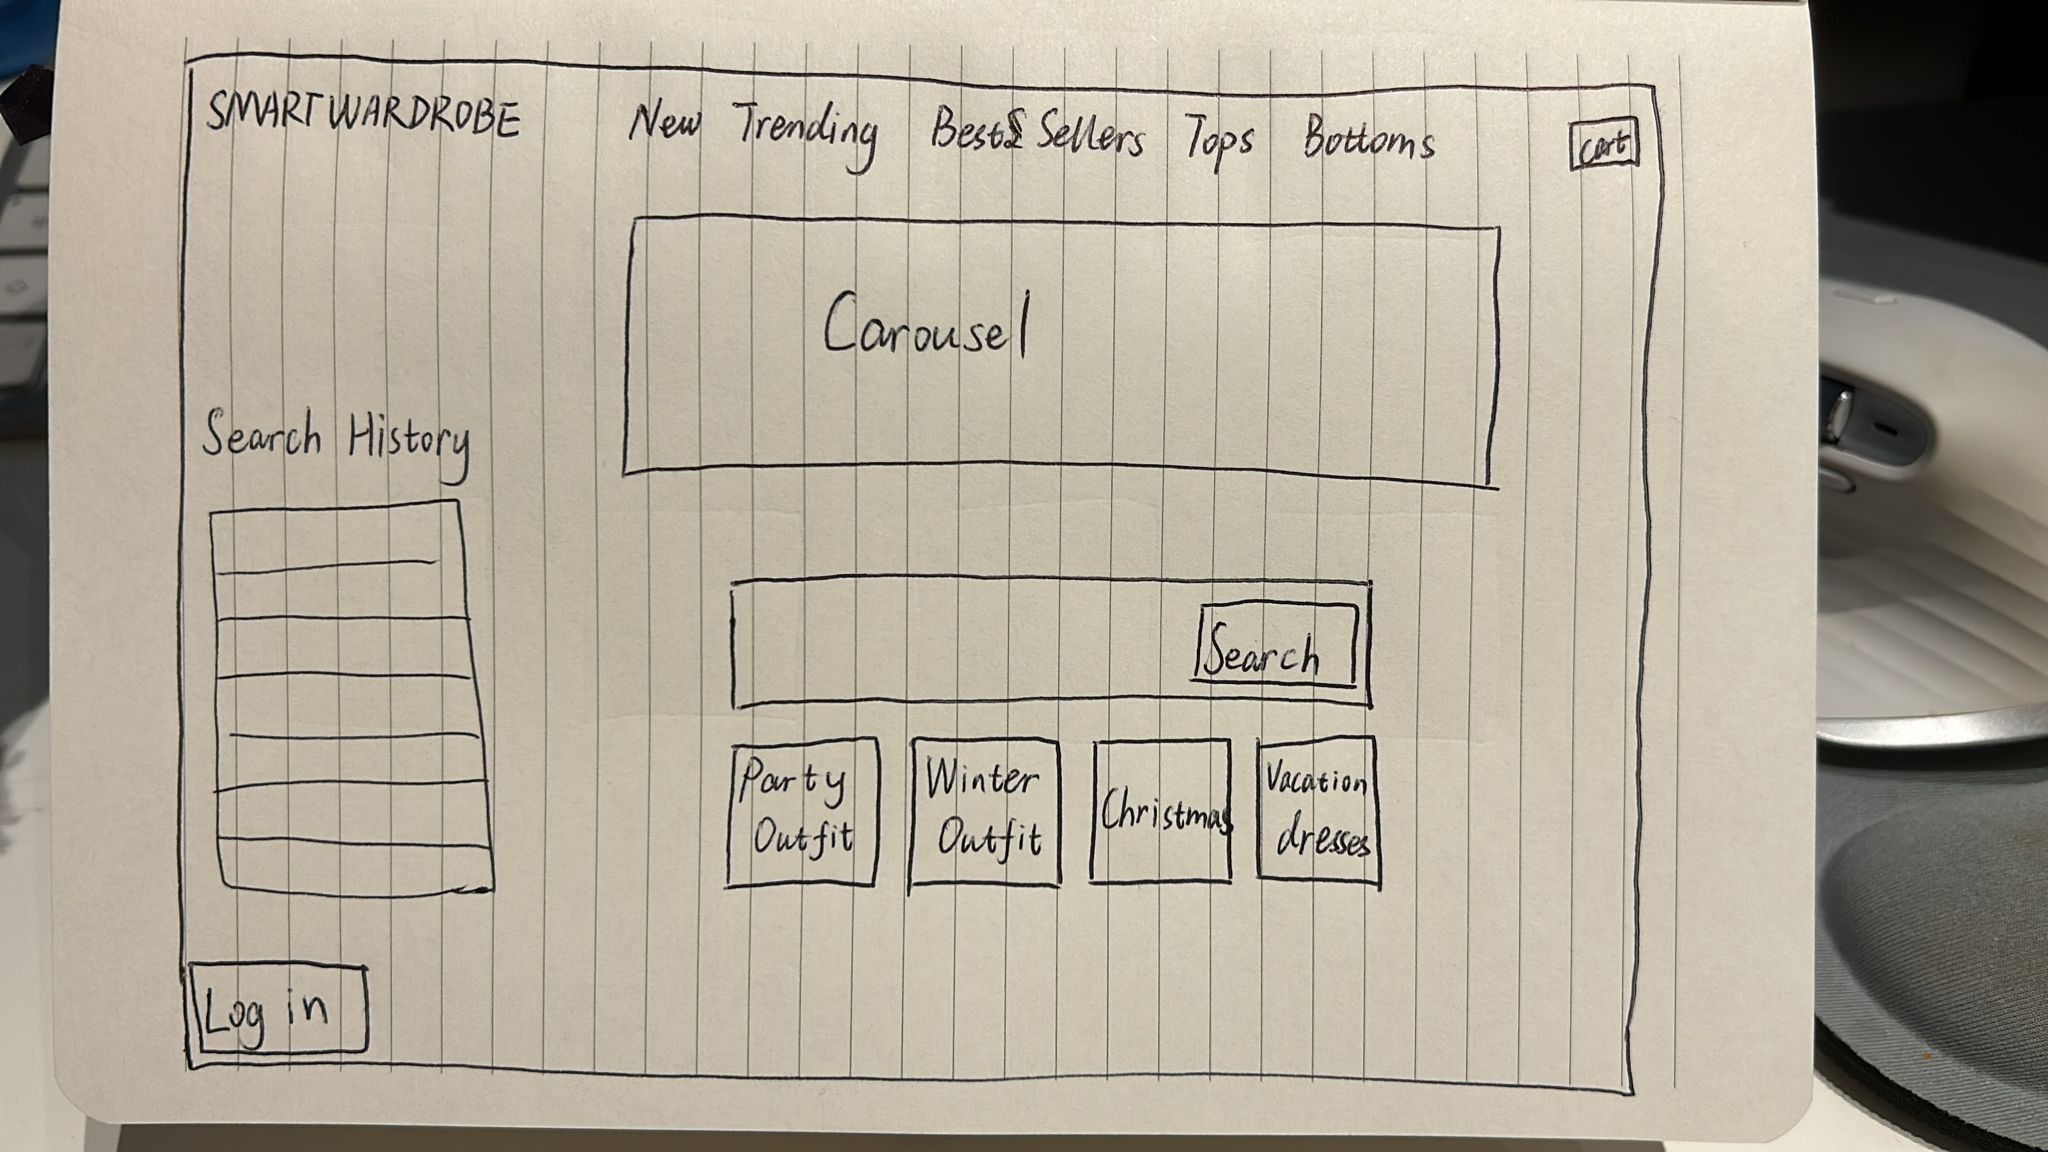 SMARTWARDROBE
New Trending Best Sellers Tops Bottoms
cart
Carousel
Search History
Search
Party
Outfit
Winter
Outfit
Christmas
Vacation
dresses
Log in